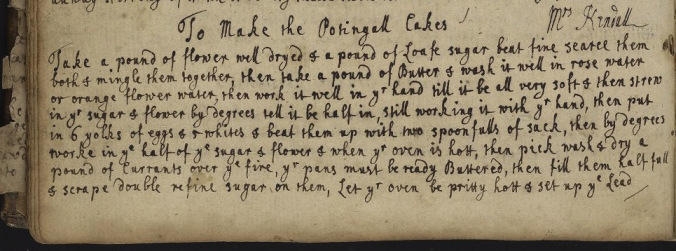 To Make the Potingall Cakes / Mrs Kendall
Take a pound of flower well dryed & a pound of Loafe sugar beat fine searce them
both & mingle them together, then take a pound of Butter & wash it well in rose water
or orange flower water, then work it well in yr hand till it be all very soft & then strew
in yr sugar & flower by degrees tell it be half in, still working it with yr hand, then put
in 6 yolks of eggs & whites & beat them up with two spoonfulls of sack, then by degrees
worke in ye half of ye sugar & flower & when yr oven is hott, then pick wash & dry a
pound of Currants over ye fire, yr pans must be ready Buttered, then fill them half full
& scrape double refine sugar on them, Let yr oven be pritty hott & set up ye Lead